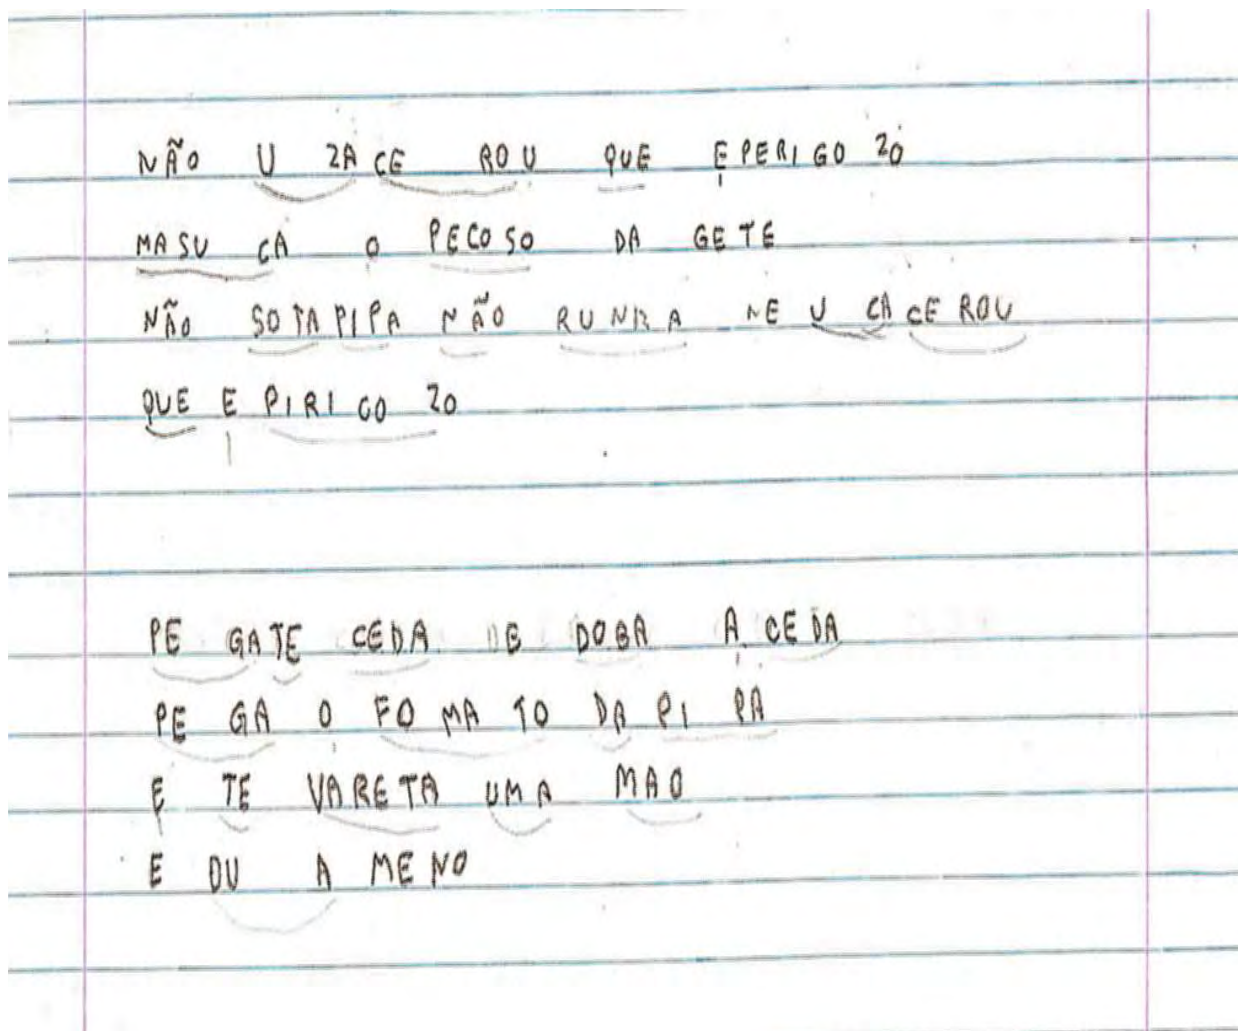 NÃO U ZA CE ROU QUE E PERIGO ZO
MASU CA O PECOSO DA GETE
NÃO SOTA PIPA NÃO NE U CA CE ROU
QUE E PIRI GO ZO
PE GA TE CEDA DE DOBA A CEDA
PE GA O FO MA TO DA PI PA
E TE VARETA UMA MAO
E DU A MENO